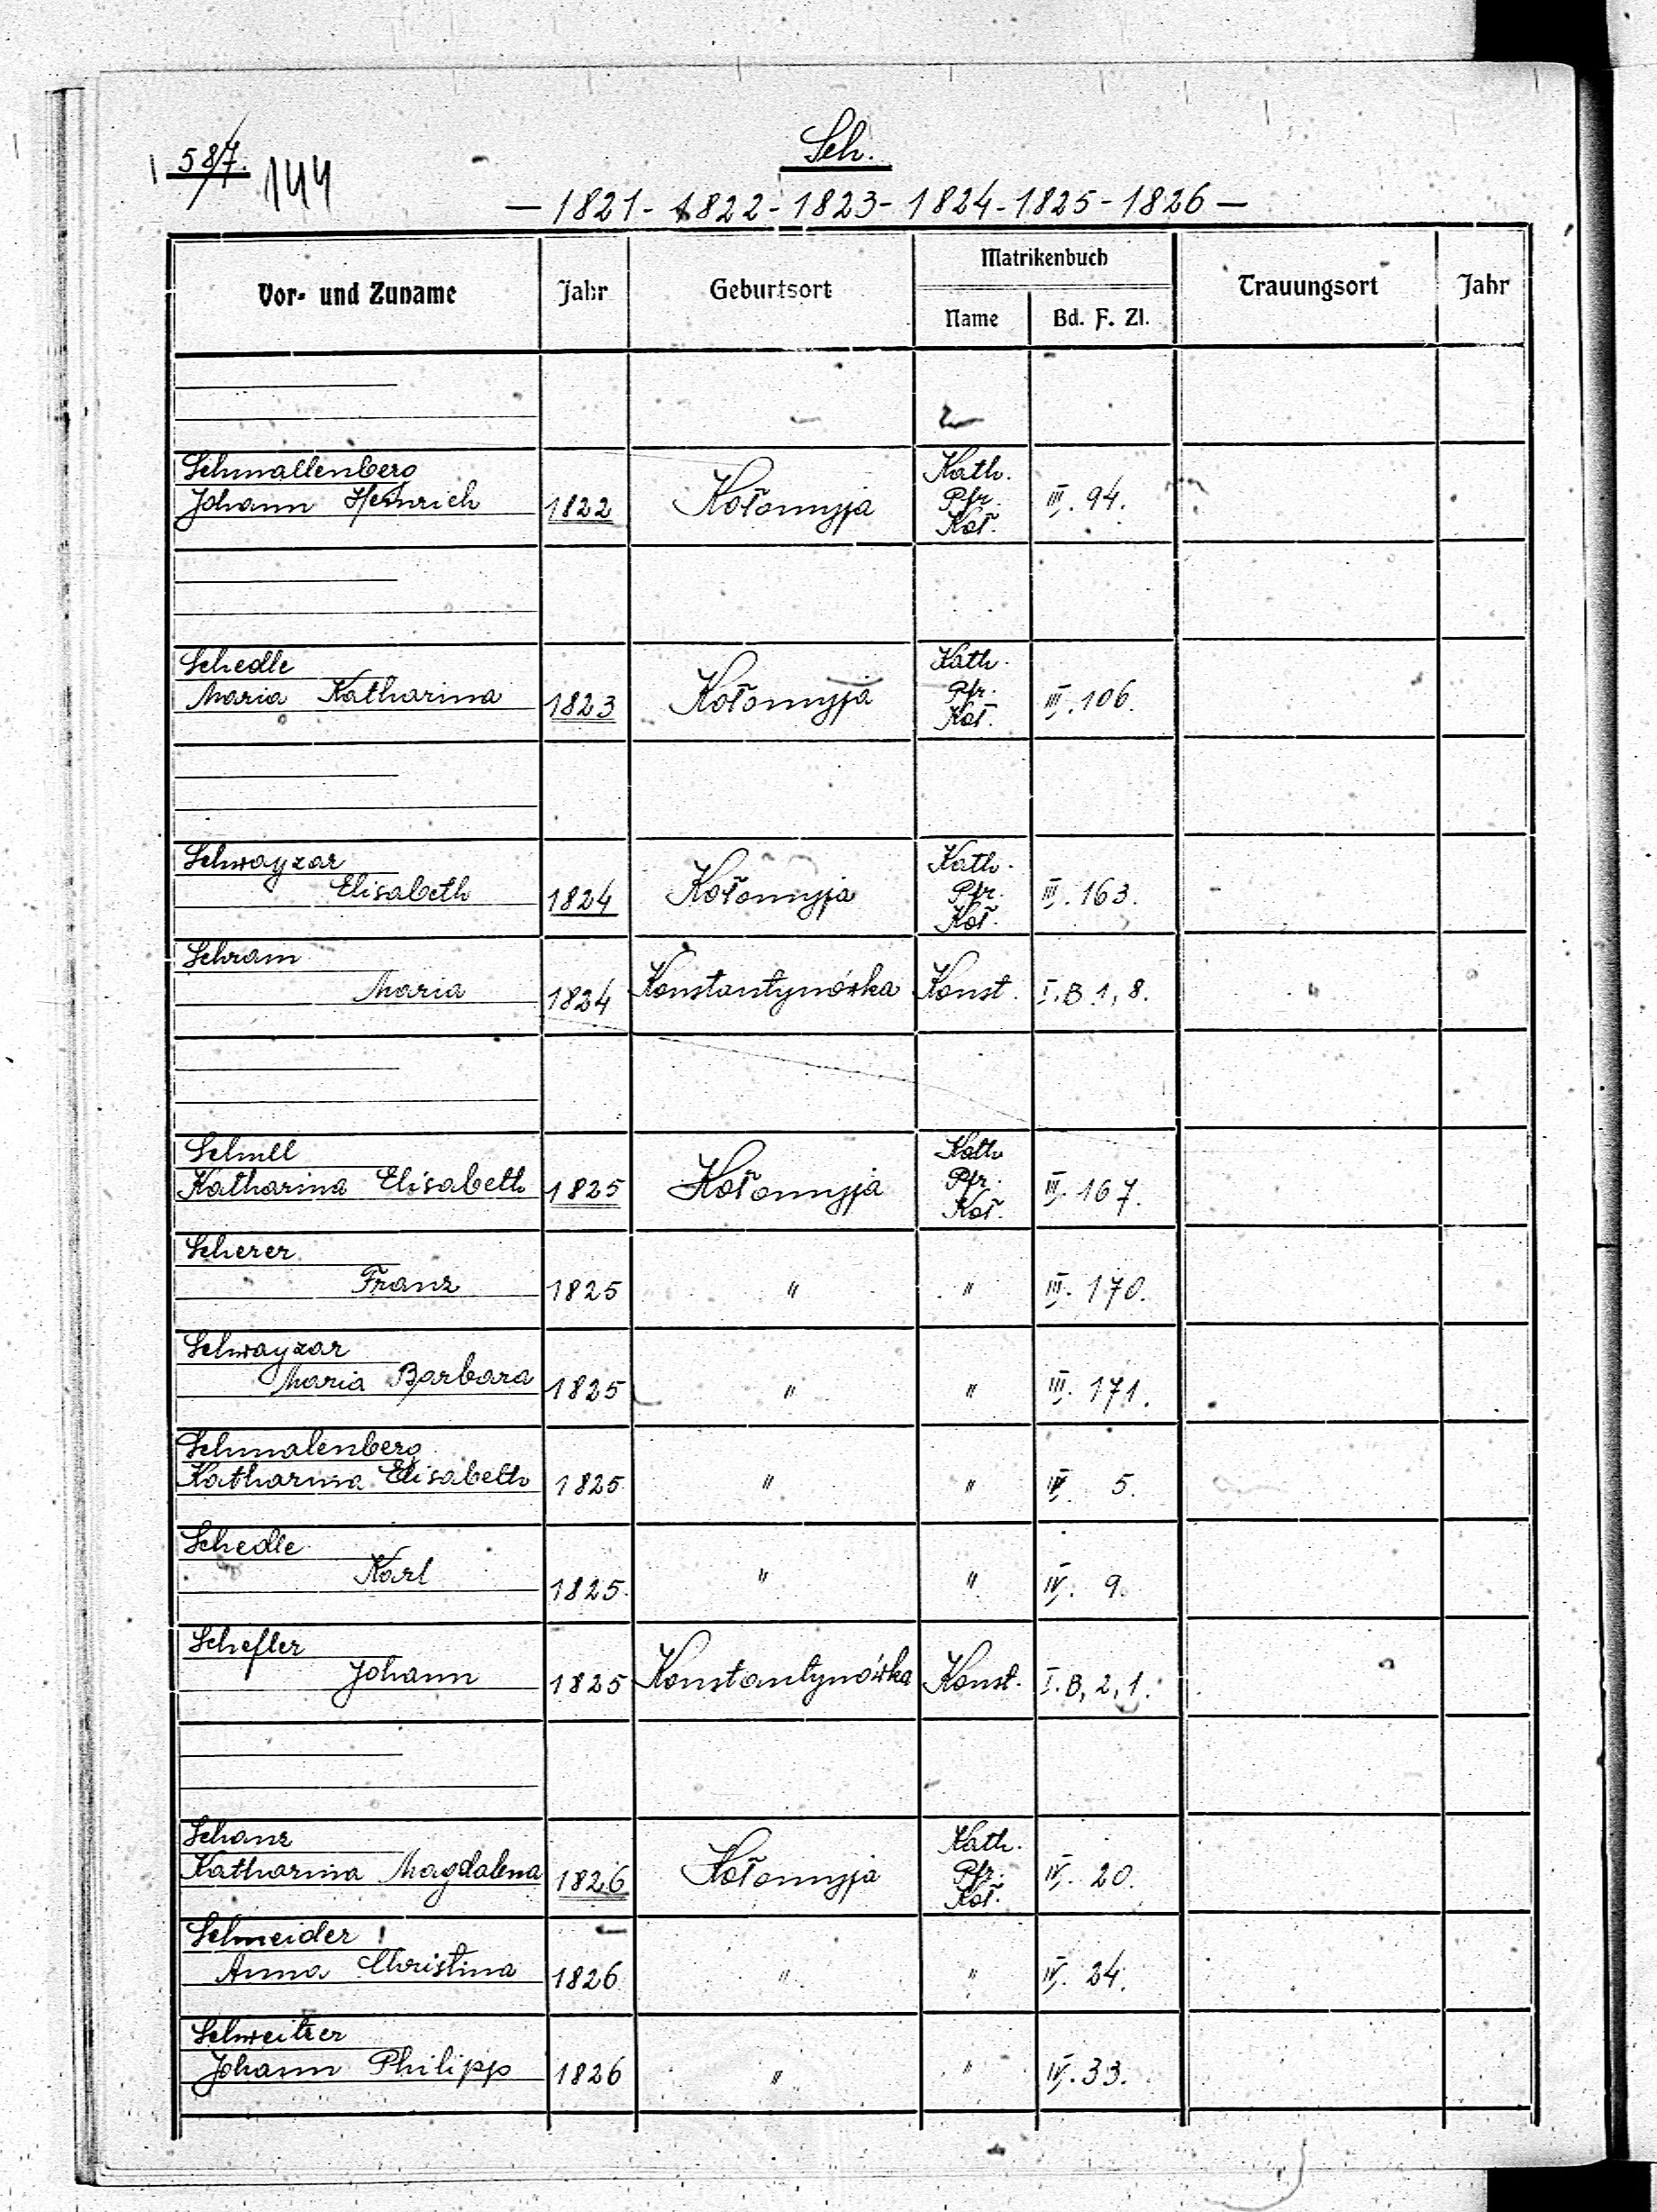 58/7. 144
Sch.
— 1821 - 1822 - 1823 - 1824 - 1825 - 1826 —
Vor- und Zuname Jahr Geburtsort Matrikenbuch Trauungsort Jahr
Name Bd. F. Zl.
Schmallenberg
Johann Heinrich 1822 Kołomyja Kath. Pfr. Koł. III. 94.
Schedle
Maria Katharina 1823 Kołomyja Kath. Pfr. Koł. III. 106.
Schwayzar
Elisabeth 1824 Kołomyja Kath. Pfr. Koł. III. 163.
Schram
Maria 1824 Konstantynówka Konst. I. B. 1, 8.
Schill
Katharina Elisabeth 1825 Kołomyja Kath Pfr. Koł. III. 167.
Scherer
Franz 1825 " " III. 170.
Schwayzar
Maria Barbara 1825 " " III. 171.
Schmalenberg
Katharina Elisabeth 1825 " " IV. 5.
Schedle
Karl 1825 " " IV. 9.
Schefler
Johann 1825 Konstantynówka Konst. I. B, 2, 1.
Schanz
Katharina Magdalena 1826 Kołomyja Kath. Pfr. Koł. IV. 20.
Schneider
Anna Christina 1826 " " IV. 24.
Schweitzer
Johann Philipp 1826 " " IV. 33.